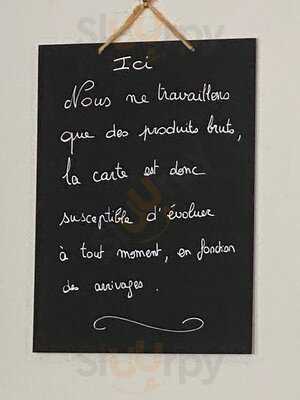 Ici
Nous ne travaillons
que des produits bruts,
la carte est donc
susceptible d'évoluer
à tout moment, en fonction
des arrivages.